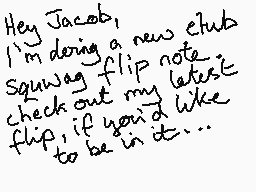 Hey Jacob,
I'm doing a new club
squwag flip note.
check out my latest
flip, if you'd like
to be in it...